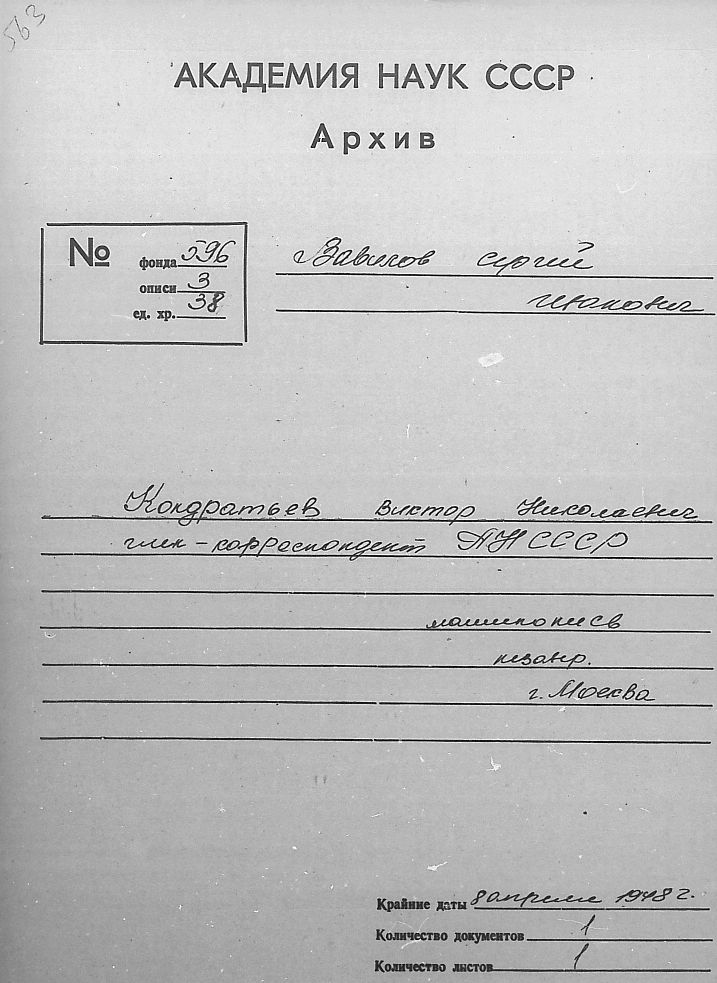 563
АКАДЕМИЯ НАУК СССР
Архив
№
фонда 596
описи 3
ед. хр. 38
Вавилов Сергей
Иванович
Кондратьев Виктор Николаевич
член-корреспондент АН СССР
машинопись
незавер.
г. Москва
Крайние даты 8 апреля 1948 г.
Количество документов 1
Количество листов 1